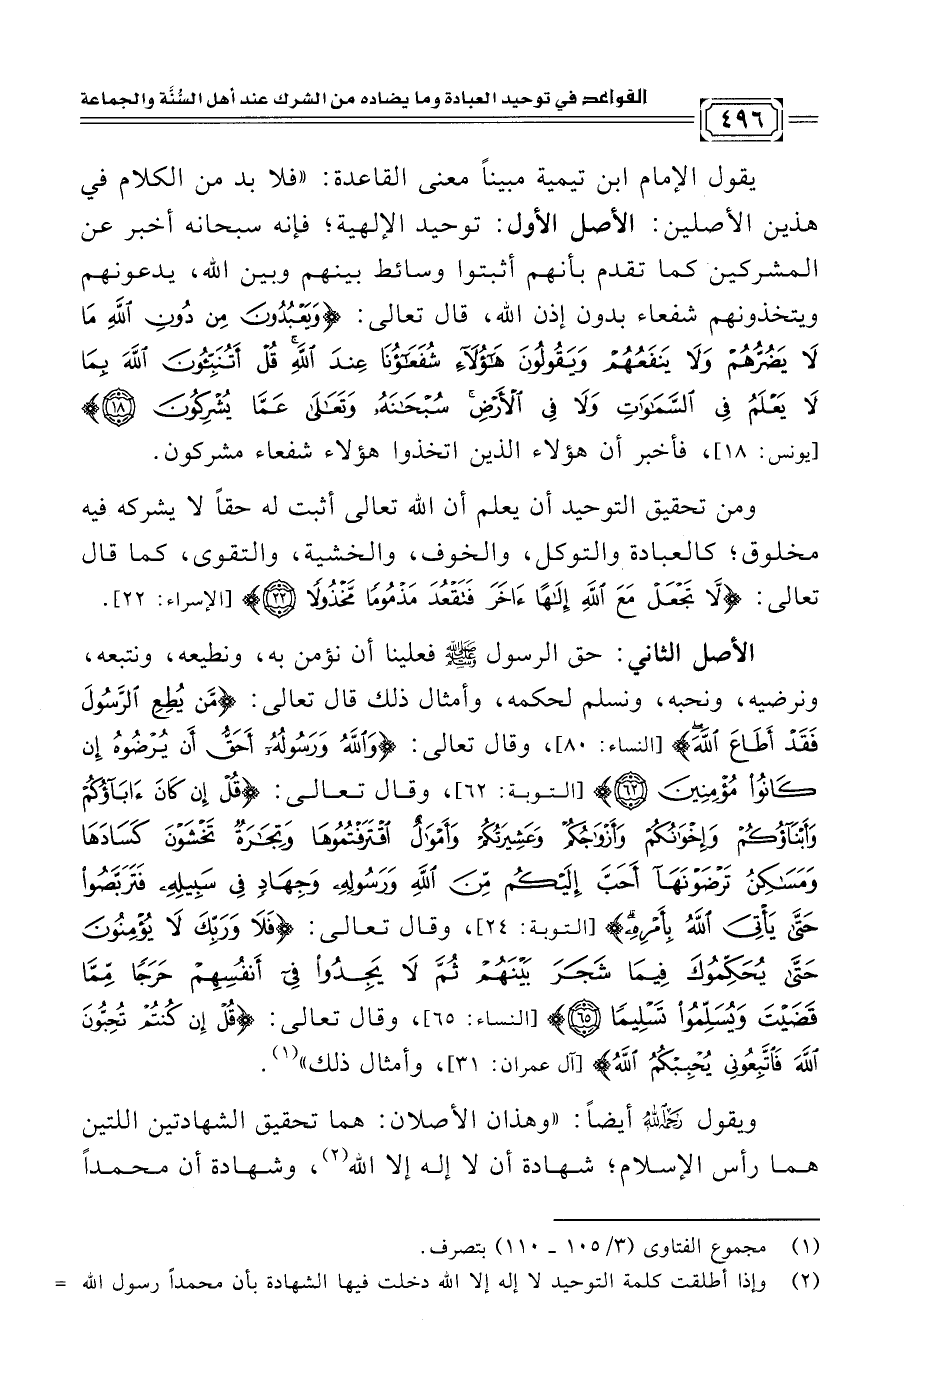 القواعد في توحيد العبادة وما يضاده من الشرك عند أهل السُّنَّة والجماعة
٤٩٦
يقول الإمام ابن تيمية مبيناً معنى القاعدة: «فلا بد من الكلام في
هذين الأصلين: الأصل الأول: توحيد الإلهية؛ فإنه سبحانه أخبر عن
المشركين كما تقدم بأنهم أثبتوا وسائط بينهم وبين الله، يدعونهم
ويتخذونهم شفعاء بدون إذن الله، قال تعالى: ﴿وَيَعْبُدُونَ مِن دُونِ ٱللَّهِ مَا
لَا يَضُرُّهُمْ وَلَا يَنفَعُهُمْ وَيَقُولُونَ هَٰٓؤُلَآءِ شُفَعَٰٓؤُنَا عِندَ ٱللَّهِۚ قُلْ أَتُنَبِّـُٔونَ ٱللَّهَ بِمَا
لَا يَعْلَمُ فِى ٱلسَّمَٰوَٰتِ وَلَا فِى ٱلْأَرْضِۚ سُبْحَٰنَهُۥ وَتَعَٰلَىٰ عَمَّا يُشْرِكُونَ ١٨﴾
[يونس: ١٨]، فأخبر أن هؤلاء الذين اتخذوا هؤلاء شفعاء مشركون.
ومن تحقيق التوحيد أن يعلم أن الله تعالى أثبت له حقاً لا يشركه فيه
مخلوق؛ كالعبادة والتوكل، والخوف، والخشية، والتقوى، كما قال
تعالى: ﴿لَّا تَجْعَلْ مَعَ ٱللَّهِ إِلَٰهًا ءَاخَرَ فَتَقْعُدَ مَذْمُومًا مَّخْذُولًا ٢٢﴾ [الإسراء: ٢٢].
الأصل الثاني: حق الرسول ﷺ فعلينا أن نؤمن به، ونطيعه، ونتبعه،
ونرضيه، ونحبه، ونسلم لحكمه، وأمثال ذلك قال تعالى: ﴿مَّن يُطِعِ ٱلرَّسُولَ
فَقَدْ أَطَاعَ ٱللَّهَۖ﴾ [النساء: ٨٠]، وقال تعالى: ﴿وَٱللَّهُ وَرَسُولُهُۥٓ أَحَقُّ أَن يُرْضُوهُ إِن
كَانُوا۟ مُؤْمِنِينَ ٦٢﴾ [التوبة: ٦٢]، وقال تعالى: ﴿قُلْ إِن كَانَ ءَابَآؤُكُمْ
وَأَبْنَآؤُكُمْ وَإِخْوَٰنُكُمْ وَأَزْوَٰجُكُمْ وَعَشِيرَتُكُمْ وَأَمْوَٰلٌ ٱقْتَرَفْتُمُوهَا وَتِجَٰرَةٌ تَخْشَوْنَ كَسَادَهَا
وَمَسَٰكِنُ تَرْضَوْنَهَآ أَحَبَّ إِلَيْكُم مِّنَ ٱللَّهِ وَرَسُولِهِۦ وَجِهَادٍ فِى سَبِيلِهِۦ فَتَرَبَّصُوا۟
حَتَّىٰ يَأْتِىَ ٱللَّهُ بِأَمْرِهِۦۗ﴾ [التوبة: ٢٤]، وقال تعالى: ﴿فَلَا وَرَبِّكَ لَا يُؤْمِنُونَ
حَتَّىٰ يُحَكِّمُوكَ فِيمَا شَجَرَ بَيْنَهُمْ ثُمَّ لَا يَجِدُوا۟ فِىٓ أَنفُسِهِمْ حَرَجًا مِّمَّا
قَضَيْتَ وَيُسَلِّمُوا۟ تَسْلِيمًا ٦٥﴾ [النساء: ٦٥]، وقال تعالى: ﴿قُلْ إِن كُنتُمْ تُحِبُّونَ
ٱللَّهَ فَٱتَّبِعُونِى يُحْبِبْكُمُ ٱللَّهُ﴾ [آل عمران: ٣١]، وأمثال ذلك»(١).
ويقول رحمه الله أيضاً: «وهذان الأصلان: هما تحقيق الشهادتين اللتين
هما رأس الإسلام؛ شهادة أن لا إله إلا الله(٢)، وشهادة أن محمداً
(١) مجموع الفتاوى (٣/ ١٠٥ ـ ١١٠) بتصرف.
(٢) وإذا أطلقت كلمة التوحيد لا إله إلا الله دخلت فيها الشهادة بأن محمداً رسول الله =